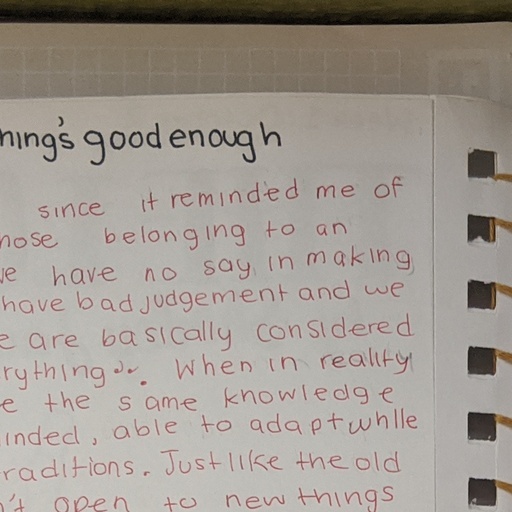 hing's good enough
since it reminded me of
hose belonging to an
ve have no say in making
have bad judgement and we
e are basically considered
rything... When in reality
e the same knowledge
inded, able to adapt while
raditions. Just like the old
n't open to new things